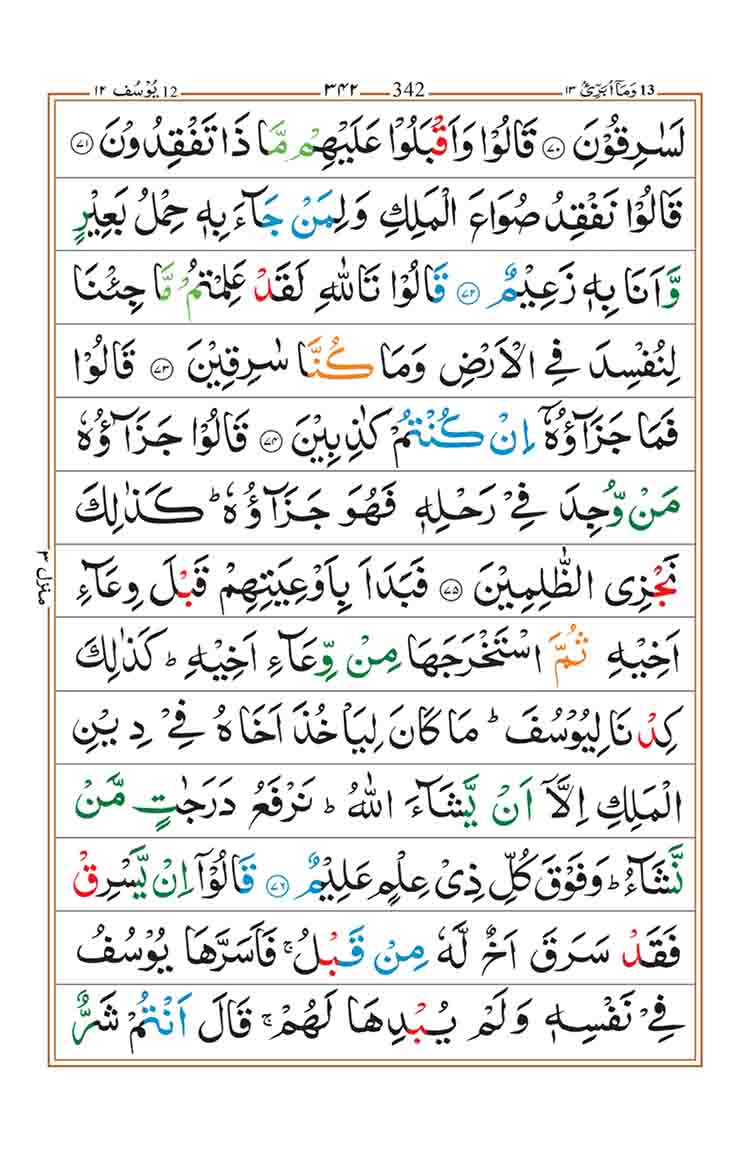 13 وَمَاۤ اُبَرِّئُ ۱۳ 342 ۳۴۲ 12 يُوْسُف ۱۲
لَسٰرِقُوْنَ ۷۰ قَالُوْا وَاَقْبَلُوْا عَلَيْهِمْ مَّا ذَا تَفْقِدُوْنَ ۷۱
قَالُوْا نَفْقِدُ صُوَاعَ الْمَلِكِ وَلِمَنْ جَآءَ بِهٖ حِمْلُ بَعِيْرٍ
وَّاَنَا بِهٖ زَعِيْمٌ ۷۲ قَالُوْا تَاللّٰهِ لَقَدْ عَلِمْتُمْ مَّا جِئْنَا
لِنُفْسِدَ فِى الْاَرْضِ وَمَا كُنَّا سٰرِقِيْنَ ۷۳ قَالُوْا
فَمَا جَزَآؤُهٗۤ اِنْ كُنْتُمْ كٰذِبِيْنَ ۷۴ قَالُوْا جَزَآؤُهٗ
مَنْ وُّجِدَ فِىْ رَحْلِهٖ فَهُوَ جَزَآؤُهٗ ؕ كَذٰلِكَ
نَجْزِى الظّٰلِمِيْنَ ۷۵ فَبَدَاَ بِاَوْعِيَتِهِمْ قَبْلَ وِعَآءِ
اَخِيْهِ ثُمَّ اسْتَخْرَجَهَا مِنْ وِّعَآءِ اَخِيْهِ ؕ كَذٰلِكَ
كِدْنَا لِيُوْسُفَ ؕ مَا كَانَ لِيَاْخُذَ اَخَاهُ فِىْ دِيْنِ
الْمَلِكِ اِلَّاۤ اَنْ يَّشَآءَ اللّٰهُ ؕ نَرْفَعُ دَرَجٰتٍ مَّنْ
نَّشَآءُ ؕ وَفَوْقَ كُلِّ ذِىْ عِلْمٍ عَلِيْمٌ ۷۶ قَالُوْۤا اِنْ يَّسْرِقْ
فَقَدْ سَرَقَ اَخٌ لَّهٗ مِنْ قَبْلُ ۚ فَاَسَرَّهَا يُوْسُفُ
فِىْ نَفْسِهٖ وَلَمْ يُبْدِهَا لَهُمْ ۚ قَالَ اَنْتُمْ شَرٌّ
منزل ۳